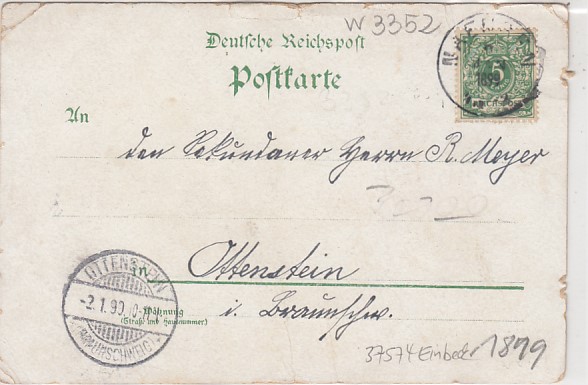 W 3352
Deutsche Reichspost
Postkarte
5
REICHSPOST
An
den Sekundaner Herrn R. Meyer
in Ottenstein
OTTENSTEIN
-2.1.99.
(BRAUNSCHWEIG)
Wohnung
(Straße und Hausnummer)
i. Braunschw.
37574 Einbeck 1899